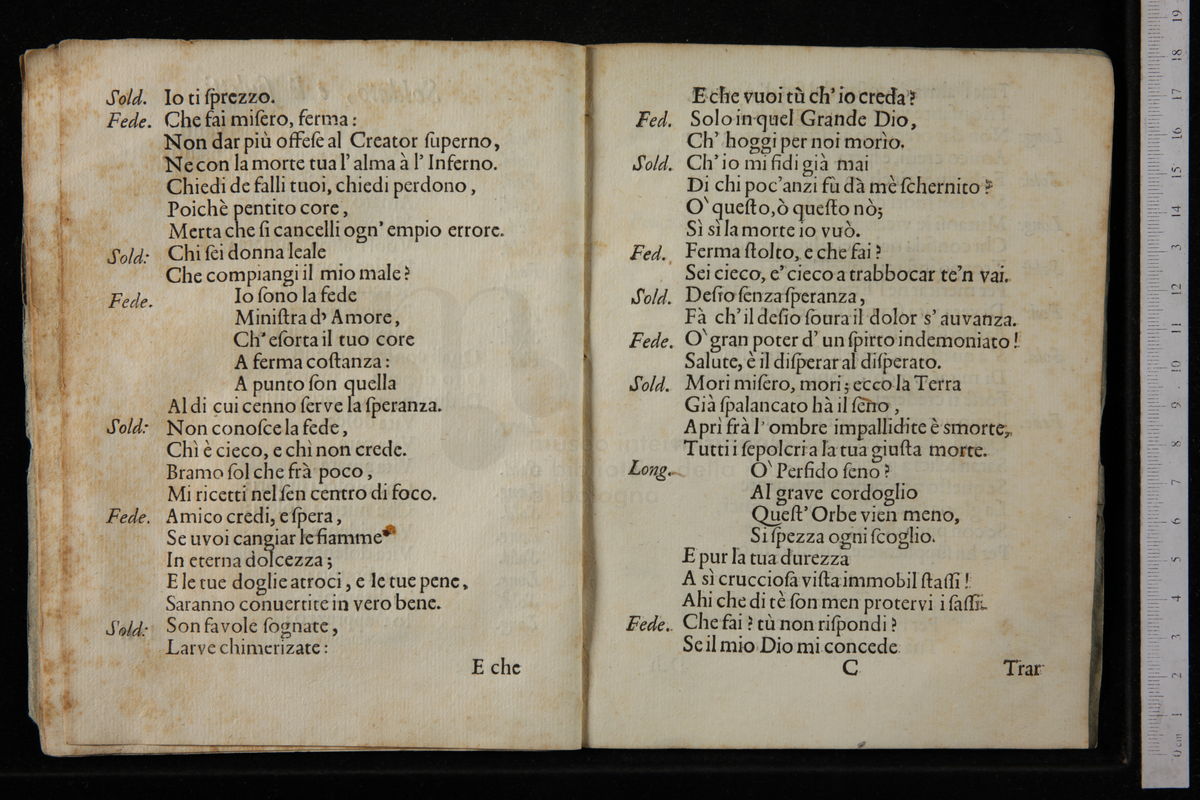 Sold. Io ti ſprezzo.
Fede. Che fai miſero, ferma:
Non dar più offeſe al Creator ſuperno,
Ne con la morte tua l'alma à l'Inferno.
Chiedi de falli tuoi, chiedi perdono,
Poichè pentito core,
Merta che ſi cancelli ogn' empio errore.
Sold: Chi ſei donna leale
Che compiangi il mio male?
Fede. Io ſono la fede
Miniſtra d' Amore,
Ch' eſorta il tuo core
A ferma coſtanza:
A punto ſon quella
Al di cui cenno ſerve la ſperanza.
Sold: Non conoſce la fede,
Chì è cieco, e chì non crede.
Bramo ſol che frà poco,
Mi ricetti nel ſen centro di foco.
Fede. Amico credi, e ſpera,
Se uvoi cangiar le fiamme
In eterna dolcezza;
E le tue doglie atroci, e le tue pene,
Saranno conuertite in vero bene.
Sold: Son favole ſognate,
Larve chimerizate:
E che
E che vuoi tù ch' io creda?
Fed. Solo in quel Grande Dio,
Ch' hoggi per noi morìo.
Sold. Ch' io mi fidi già mai
Di chi poc'anzi fù dà mè ſchernito?
O' queſto, ò queſto nò;
Sì sì la morte io vuò.
Fed. Ferma ſtolto, e che fai?
Sei cieco, e' cieco a trabboccar te'n vai.
Sold. Deſio ſenza ſperanza,
Fà ch' il deſio ſoura il dolor s' auvanza.
Fede. O' gran poter d' un ſpirto indemoniato!
Salute, è il diſperar al diſperato.
Sold. Mori miſero, mori; ecco la Terra
Già ſpalancato hà il ſeno,
Aprì frà l' ombre impallidite è smorte,
Tutti i ſepolcri a la tua giuſta morte.
Long. O' Perfido ſeno?
Al grave cordoglio
Queſt' Orbe vien meno,
Si ſpezza ogni ſcoglio.
E pur la tua durezza
A sì crucciosa viſta immobil ſtaſſi!
Ahi che di tè ſon men protervi i ſaſſi.
Fede. Che fai? tù non riſpondi?
Se il mio Dio mi concede
C
Trar
0 cm 1 2 3 4 5 6 7 8 9 10 11 12 13 14 15 16 17 18 19